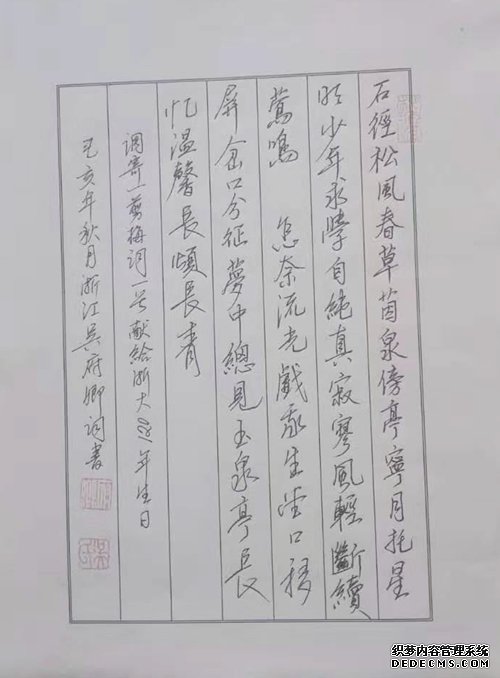 石徑松風春草茵泉傍亭寧月托星
少年求學自純真寂寥風輕斷續
鶯鳴 怎奈流光戲生口移
屏岔口分征夢中總見玉泉亭長
忆温馨長頌長青
调寄一剪梅词一献给浙大年生日
己亥年秋月浙江吴府卿词書
织梦内容管理系统
DEDECMS.COM